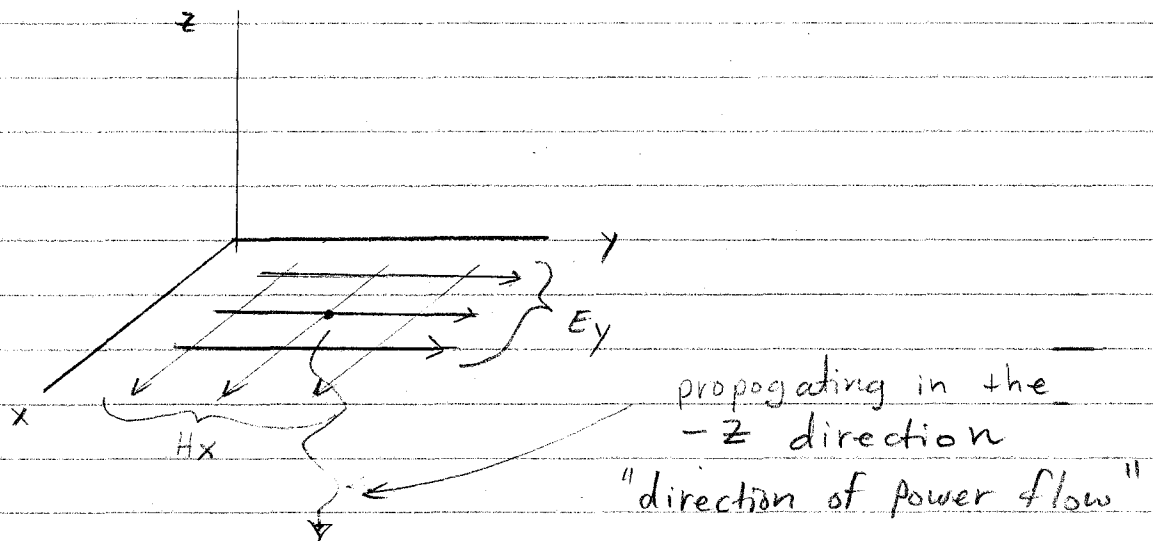 z
y
Ey
x
Hx
propogating in the
- z direction
"direction of power flow"